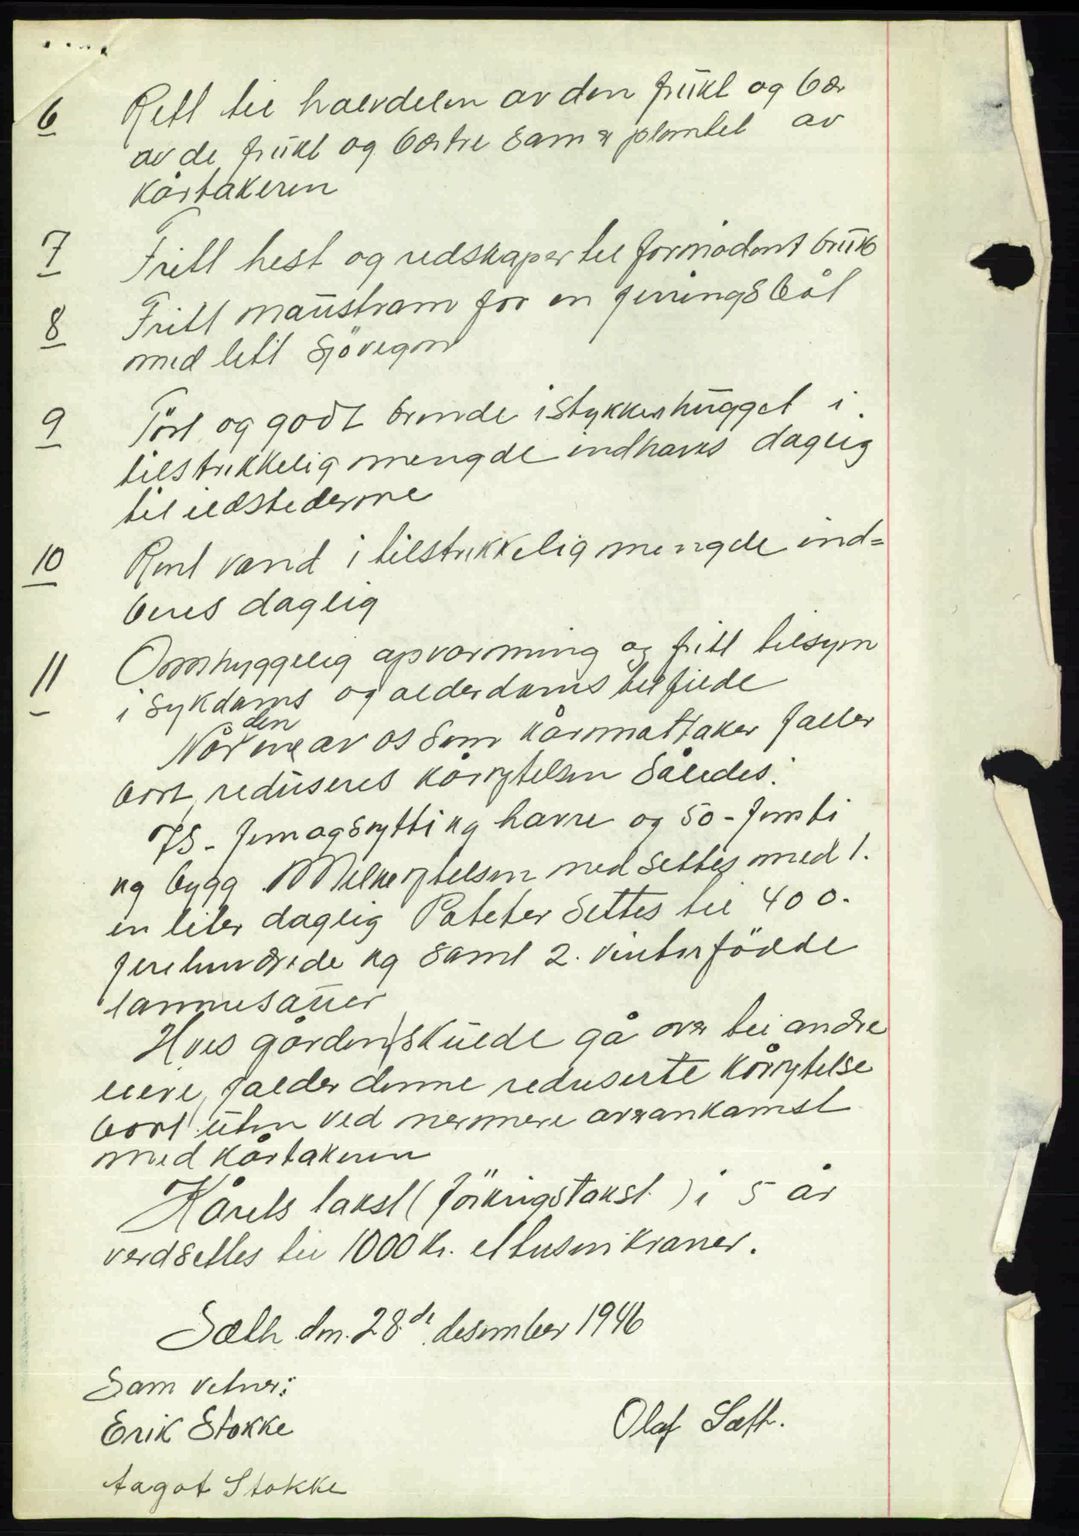 6 Rett til halvdelen av den frukt og bær
av de frukt og bærtre som er plantet av
kårtakeren
7 Fritt hest og redskaper til fornødent bruk
8 Fritt naustrom for en færingsbåt
med lett sjövegn
9 Tört og godt brende i stykker hugget i
tilstrekkelig mengde indhaves daglig
til ildstederne
10 Rent vand i tilstrekkelig mengde ind=
beres daglig
11 Omhyggelig opvarming og fritt tilsyn
i sykdoms og alderdoms tilfelde
Når den ene av os som kårmottaker faller
bort, reduseres kårytelsen således:
75 - femogsytti kg havre og 50 - femti
kg bygg Melkeytelsen nedsettes med 1.
en liter daglig Poteter settes til 400.
firehundrede kg samt 2. vinterfödde
lammesauer
Hvis gården skulde gå over til andre
eiere, falder denne reduserte kårytelse
bort uten ved nermere overankomst
med kårtakeren
Kårets takst ( forkrigstakst ) i 5 år
verdsettes til 1000 kr. ettusen kroner.
Sæth den. 28.de desember 1946
Som vitner:
Erik Stokke
Olaf Sæth.
Aagot Stokke